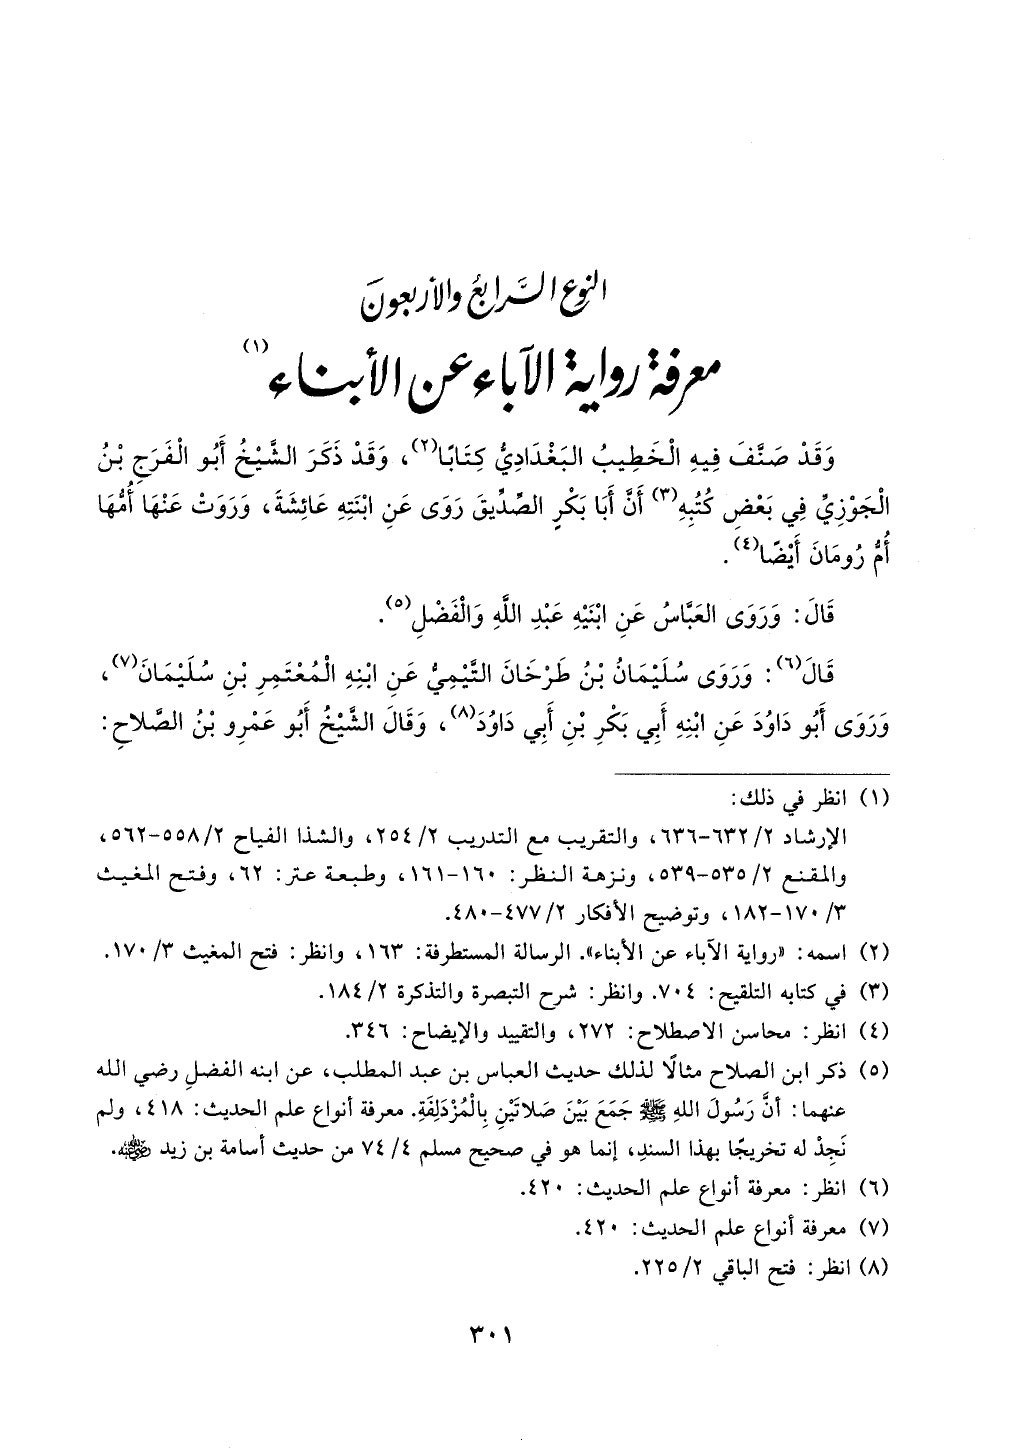 النوع الرابع والأربعون
معرفة رواية الآباء عن الأبناء (١)
وَقَدْ صَنَّفَ فِيهِ الْخَطِيبُ البَغْدَادِيُّ كِتَابًا(٢)، وَقَدْ ذَكَرَ الشَّيْخُ أَبُو الْفَرَجِ بْنُ
الْجَوْزِيِّ فِي بَعْضِ كُتُبِهِ(٣) أَنَّ أَبَا بَكْرٍ الصِّدِّيقَ رَوَى عَنِ ابْنَتِهِ عَائِشَةَ، وَرَوَتْ عَنْهَا أُمُّهَا
أُمُّ رُومَانَ أَيْضًا(٤).
قَالَ: وَرَوَى العَبَّاسُ عَنِ ابْنَيْهِ عَبْدِ اللَّهِ وَالْفَضْلِ(٥).
قَالَ(٦): وَرَوَى سُلَيْمَانُ بْنُ طَرْخَانَ التَّيْمِيُّ عَنِ ابْنِهِ الْمُعْتَمِرِ بْنِ سُلَيْمَانَ(٧)،
وَرَوَى أَبُو دَاوُدَ عَنِ ابْنِهِ أَبِي بَكْرِ بْنِ أَبِي دَاوُدَ(٨)، وَقَالَ الشَّيْخُ أَبُو عَمْرِو بْنُ الصَّلَاحِ:
(١) انظر في ذلك:
الإرشاد ٢/ ٦٣٢-٦٣٦، والتقريب مع التدريب ٢/ ٢٥٤، والشذا الفياح ٢/ ٥٥٨-٥٦٢،
والمقنع ٢/ ٥٣٥-٥٣٩، ونزهة النظر: ١٦٠-١٦١، وطبعة عتر: ٦٢، وفتح المغيث
٣/ ١٧٠-١٨٢، وتوضيح الأفكار ٢/ ٤٧٧-٤٨٠.
(٢) اسمه: «رواية الآباء عن الأبناء». الرسالة المستطرفة: ١٦٣، وانظر: فتح المغيث ٣/ ١٧٠.
(٣) في كتابه التلقيح: ٧٠٤. وانظر: شرح التبصرة والتذكرة ٢/ ١٨٤.
(٤) انظر: محاسن الاصطلاح: ٢٧٢، والتقييد والإيضاح: ٣٤٦.
(٥) ذكر ابن الصلاح مثالًا لذلك حديث العباس بن عبد المطلب، عن ابنه الفضلِ رضي الله
عنهما: أنَّ رَسُولَ اللهِ ﷺ جَمَعَ بَيْنَ صَلاتَيْنِ بِالْمُزْدَلِفَةِ. معرفة أنواع علم الحديث: ٤١٨، ولم
نَجِدْ له تخريجًا بهذا السندِ، إنما هو في صحيح مسلم ٤/ ٧٤ من حديث أسامة بن زيد رضي الله عنه.
(٦) انظر: معرفة أنواع علم الحديث: ٤٢٠.
(٧) معرفة أنواع علم الحديث: ٤٢٠.
(٨) انظر: فتح الباقي ٢/ ٢٢٥.
٣٠١